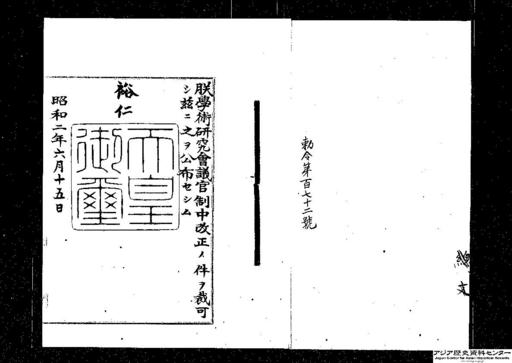 勅令第百七十二號
朕學術研究會議官制中改正ノ件ヲ裁可
シ茲ニ之ヲ公布セシム
裕仁
天皇御璽
昭和二年六月十五日
アジア歴史資料センター
Japan Center for Asian Historical Records